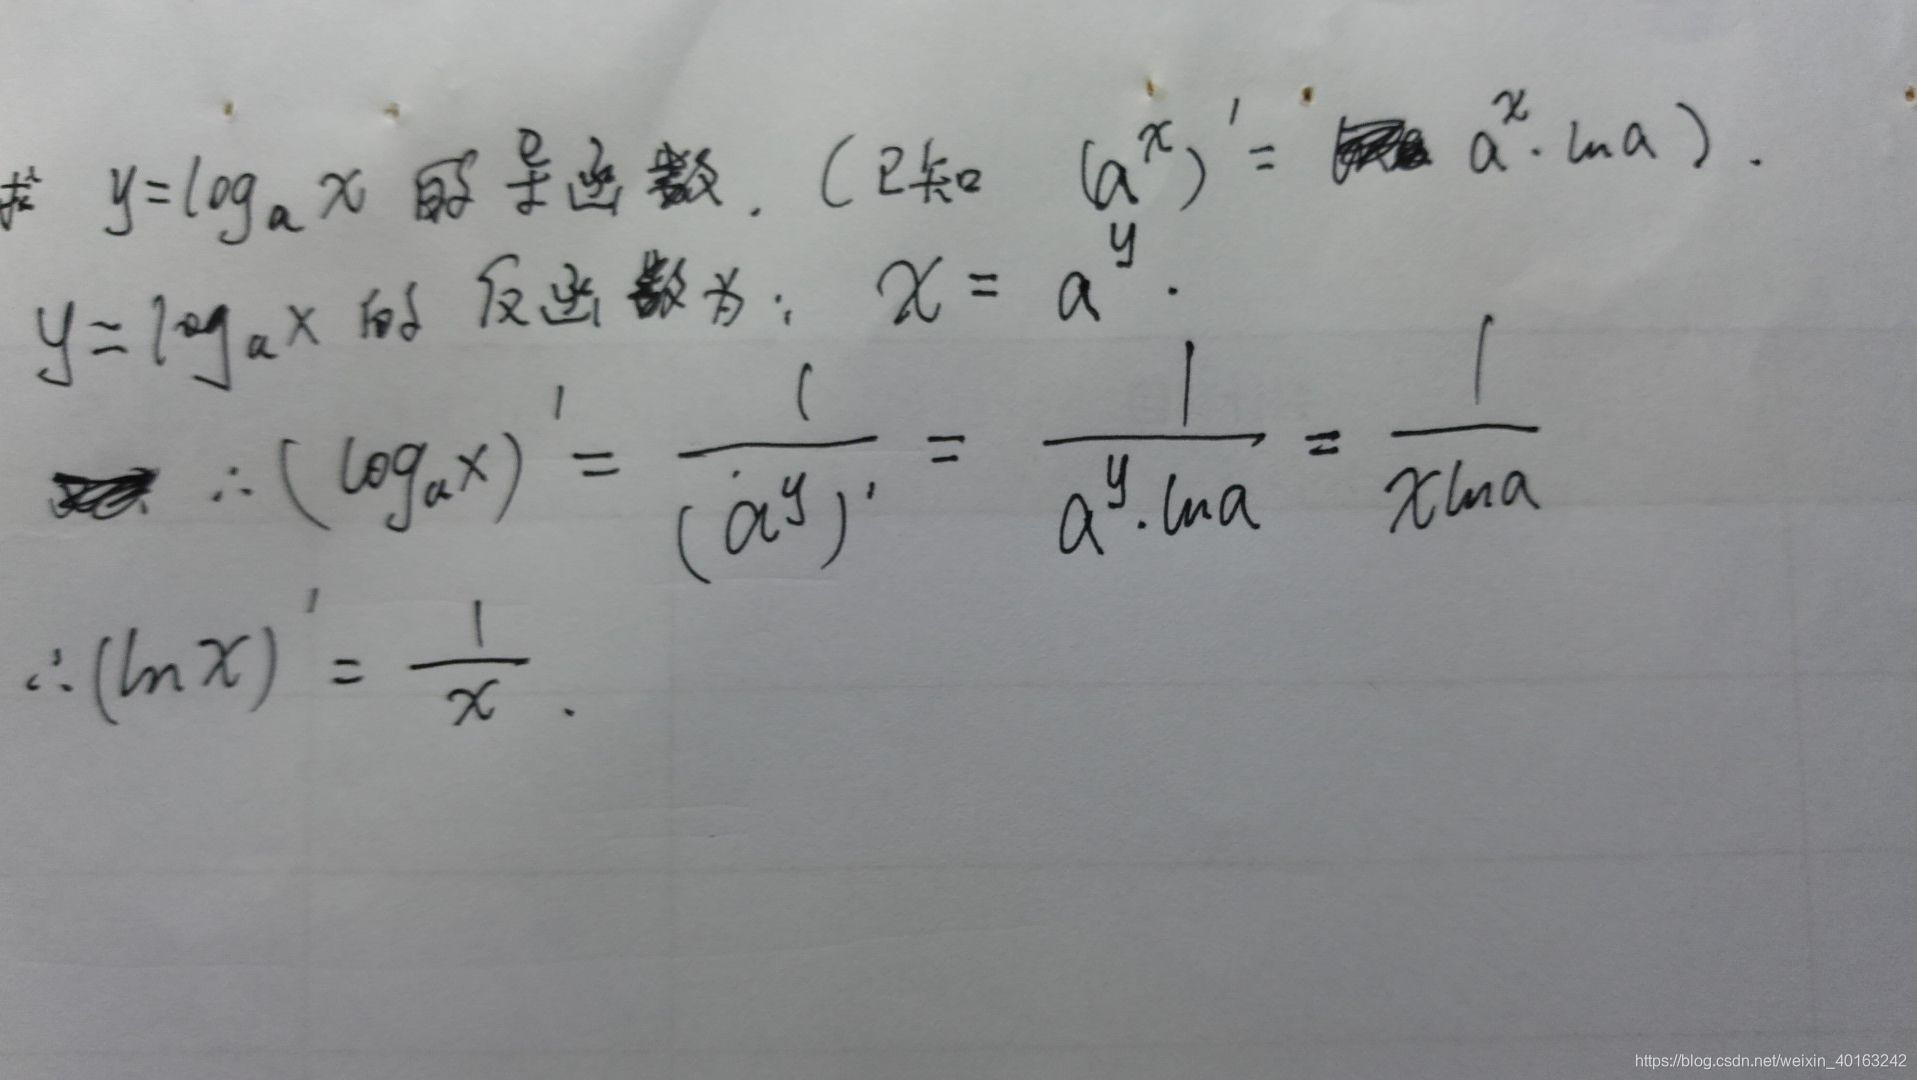 求 y=logₐx 的导函数. (已知 (aˣ)' = aˣ·lna).
y=logₐx 的反函数为: x = a^y.
∴(logₐx)' = 1/(a^y)' = 1/(a^y·lna) = 1/(xlna)
∴(lnx)' = 1/x.
https://blog.csdn.net/weixin_40163242